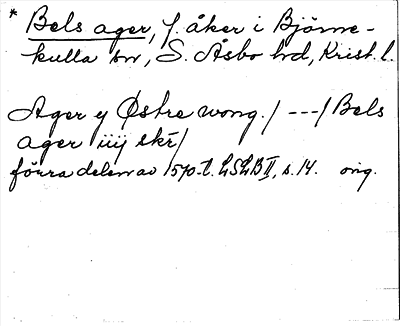 * Bels ager, f. åker i Björne-
kulla sn, S. Åsbo hd, Krist. l.
Ager y Østre wong. / --- / Bels
ager iiij skr /
förra delen av 1570-t. LSLB II, s. 14. orig.